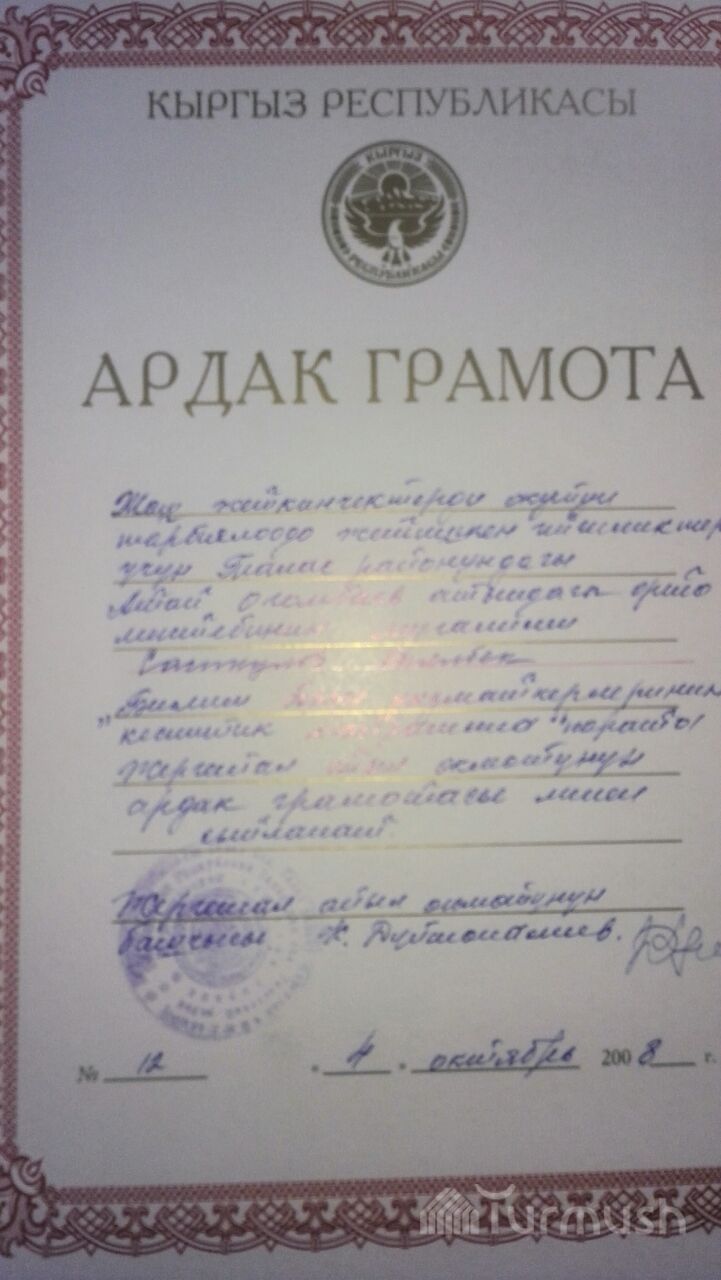 КЫРГЫЗ РЕСПУБЛИКАСЫ
КЫРГЫЗ
РЕСПУБЛИКАСЫ
АРДАК ГРАМОТА
Жаш жеткинчектерди окутуп
тарбиялоодо жетишкен ийгиликтер
үчүн Талас районундагы
Атай Огомбаев атындагы орто
мектебинин мугалими
Саткулов
"Билим берүү кызматкерлеринин
кесиптик майрамына" карата
Жергетал айыл окмотунун
ардак грамотасы менен
сыйланат.
Жергетал айыл окмотунун
башчысы К.
№ 12 " 4 " октябрь 2008 г.
Turmush